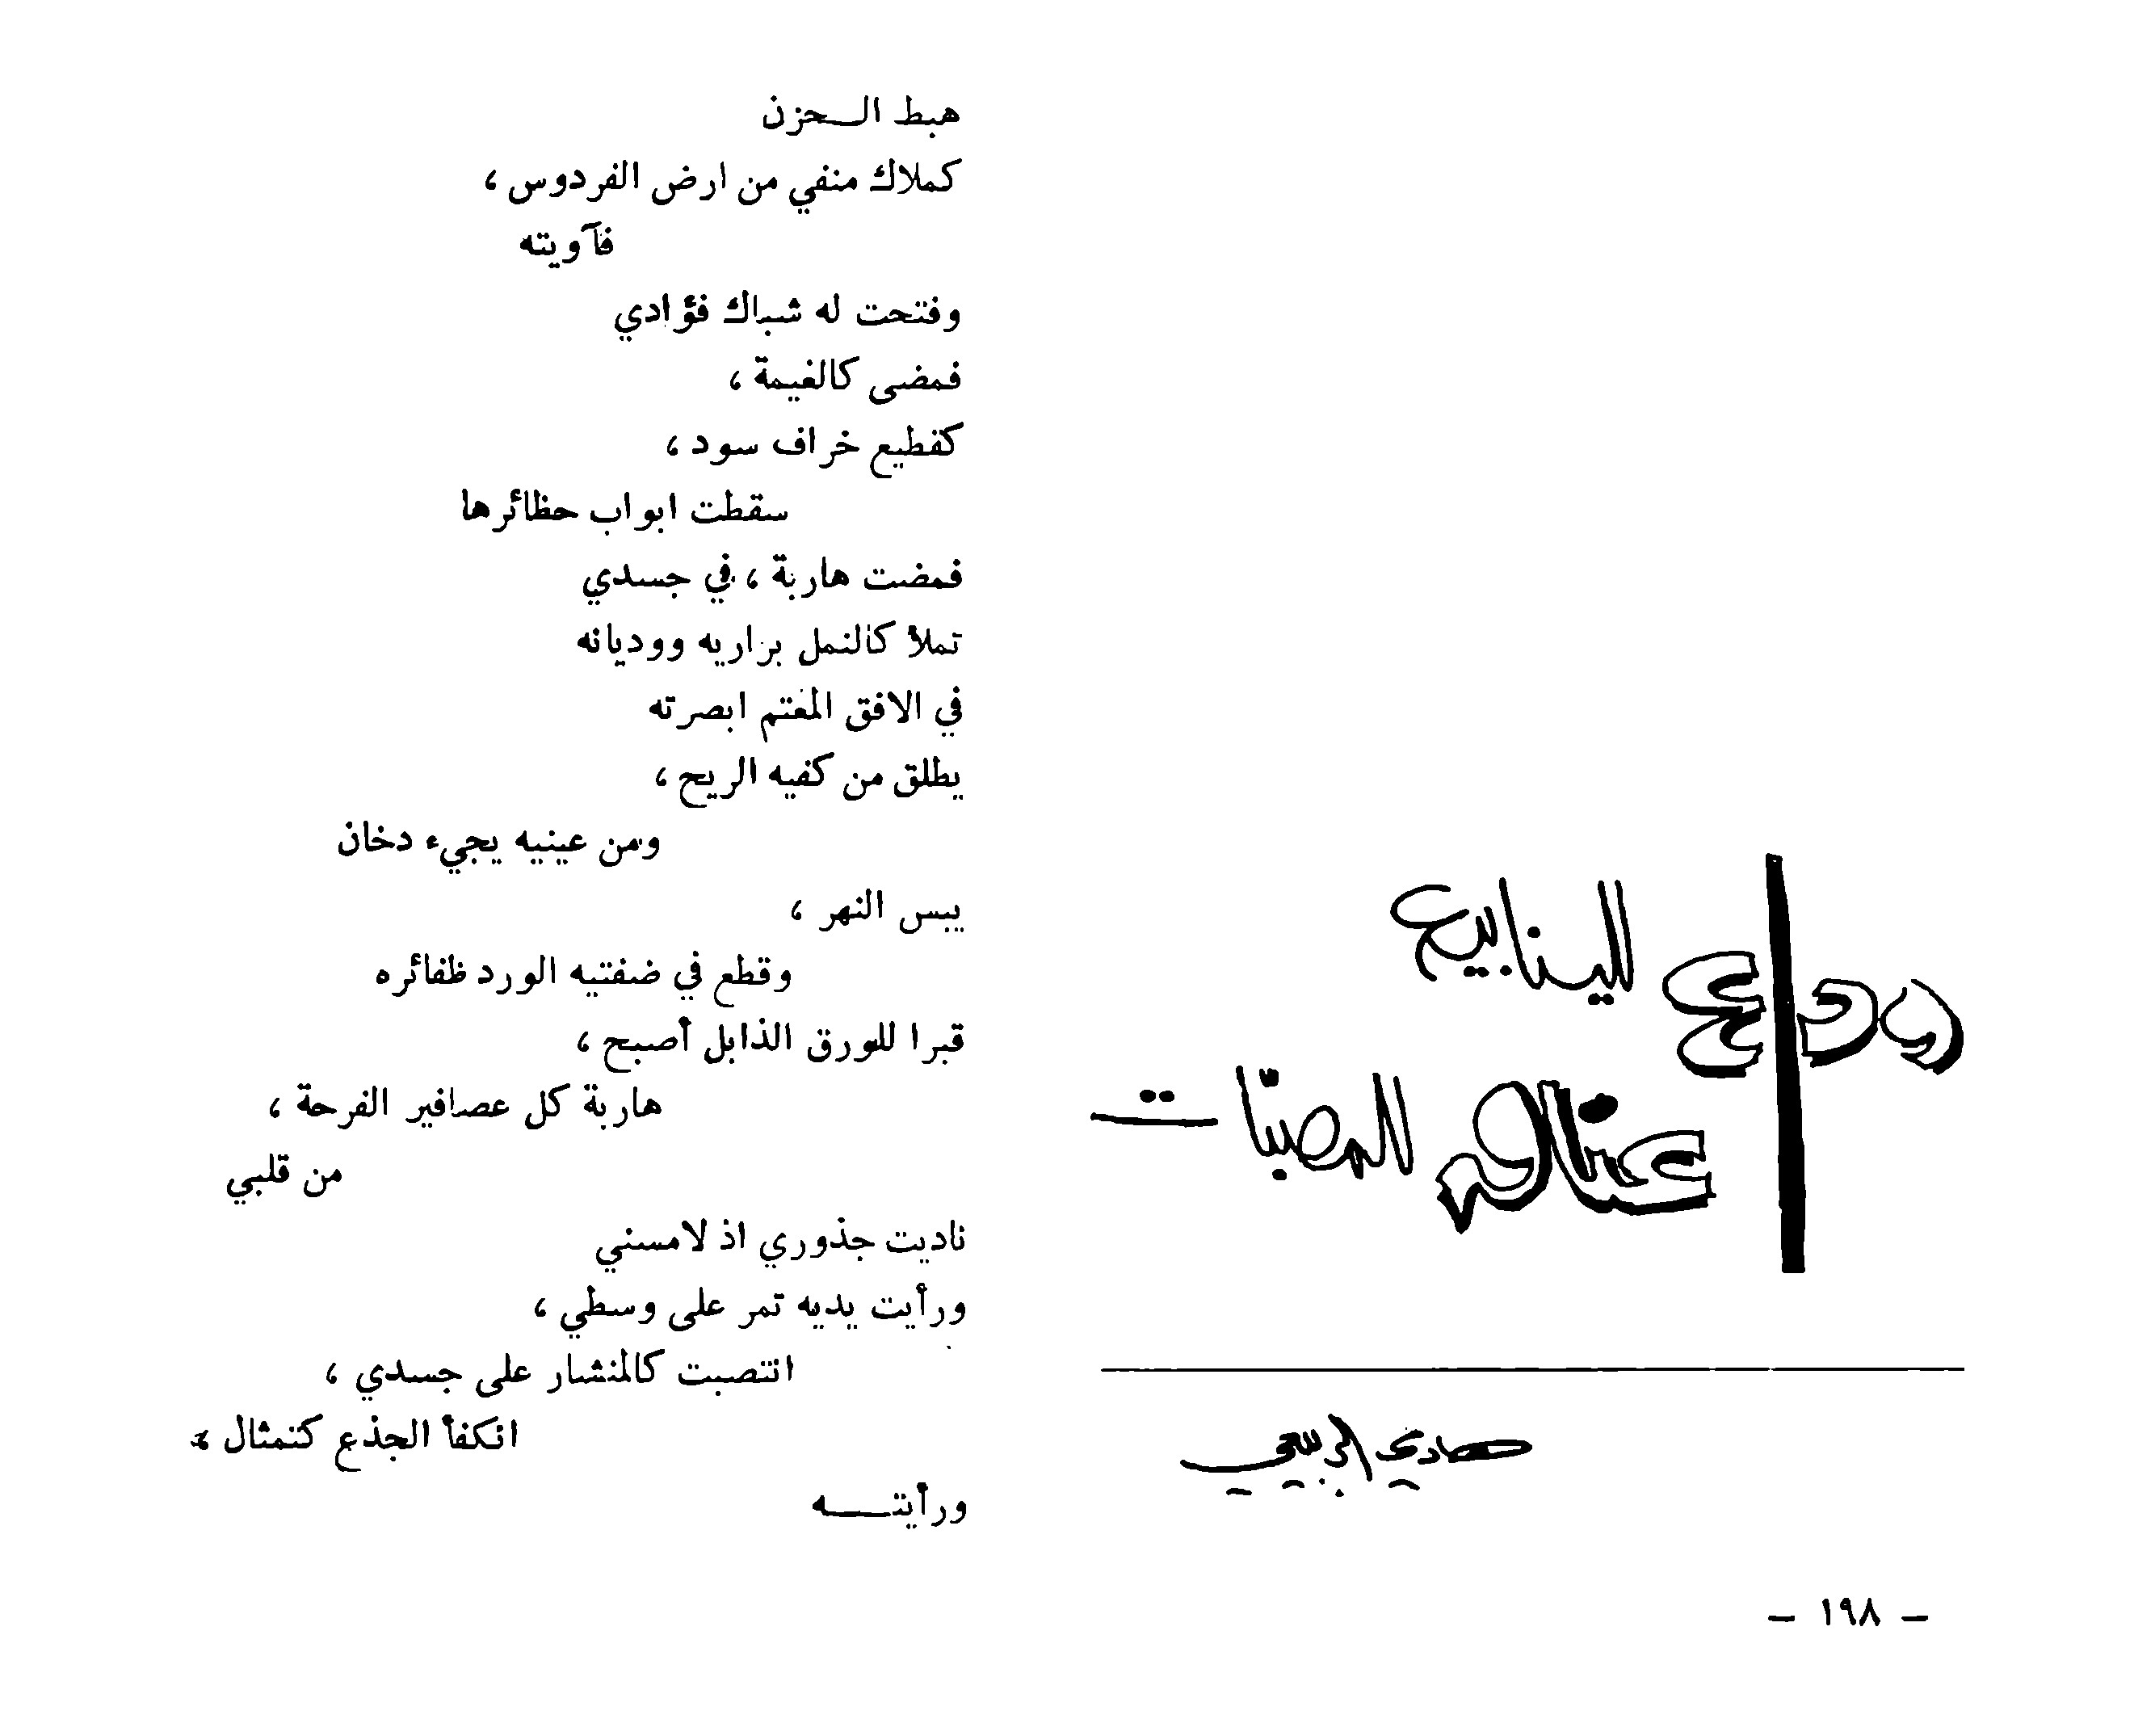 وداع للينابيع
عناق المصبّات
هادي الربيعي
هبط الحزن
كملاك منفي من ارض الفردوس ،
فآويته
وفتحت له شباك فؤادي
فمضى كالغيمة ،
كقطيع خراف سود ،
سقطت ابواب حظائرها
فمضت هاربة ، في جسدي
تملأ كالنمل براريه ووديانه
في الافق المغتم ابصرته
يطلق من كفيه الريح ،
ومن عينيه يجيء دخان
يبس النهر ،
وقطع في ضفتيه الورد ظفائره
قبرا للورق الذابل أصبح ،
هاربة كل عصافير الفرحة ،
من قلبي
ناديت جذوري اذ لامسني
ورأيت يديه تمر على وسطي ،
انتصبت كالمنشار على جسدي ،
انكفأ الجذع كتمثال ،
ورأيته
– ١٩٨ –